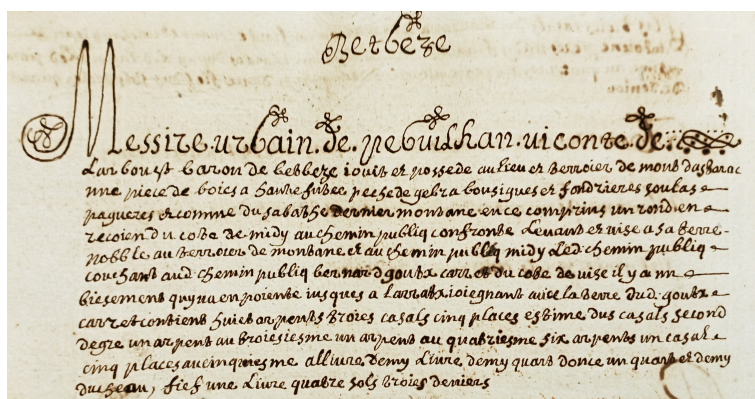 Betbeze
Messire urbain de pebuilhan viconte de
Larboust baron de betbeze jouit et possede au lieu et terroier de mont dastarac
une piece de boies a haute futee peche de gebra bousigues et fondrieres soulas
pagueres et comme du sabathe dernier montane en ce comprins un rond en
recoien du cote de midy au chemin publiq confronte Levant et vise a sa terre
nobble au terroier de montane et au chemin publiq midy Led chemin publiq
couchant aud chemin publiq bernard goutx carret du cote de vise il y a un
biesement quy va en pointe jusques a Larratx joiegnant avec la terre dud goutx
carret contient huict arpents troies casals cinq places estime dus casals second
degre un arpent au troiesiesme un arpent au quatriesme six arpents un casal
cinq places au cinquiesme allivre demy Livre demy quart donce un quart et demy
ducheau, fief une Livre quatre sols troies deniers